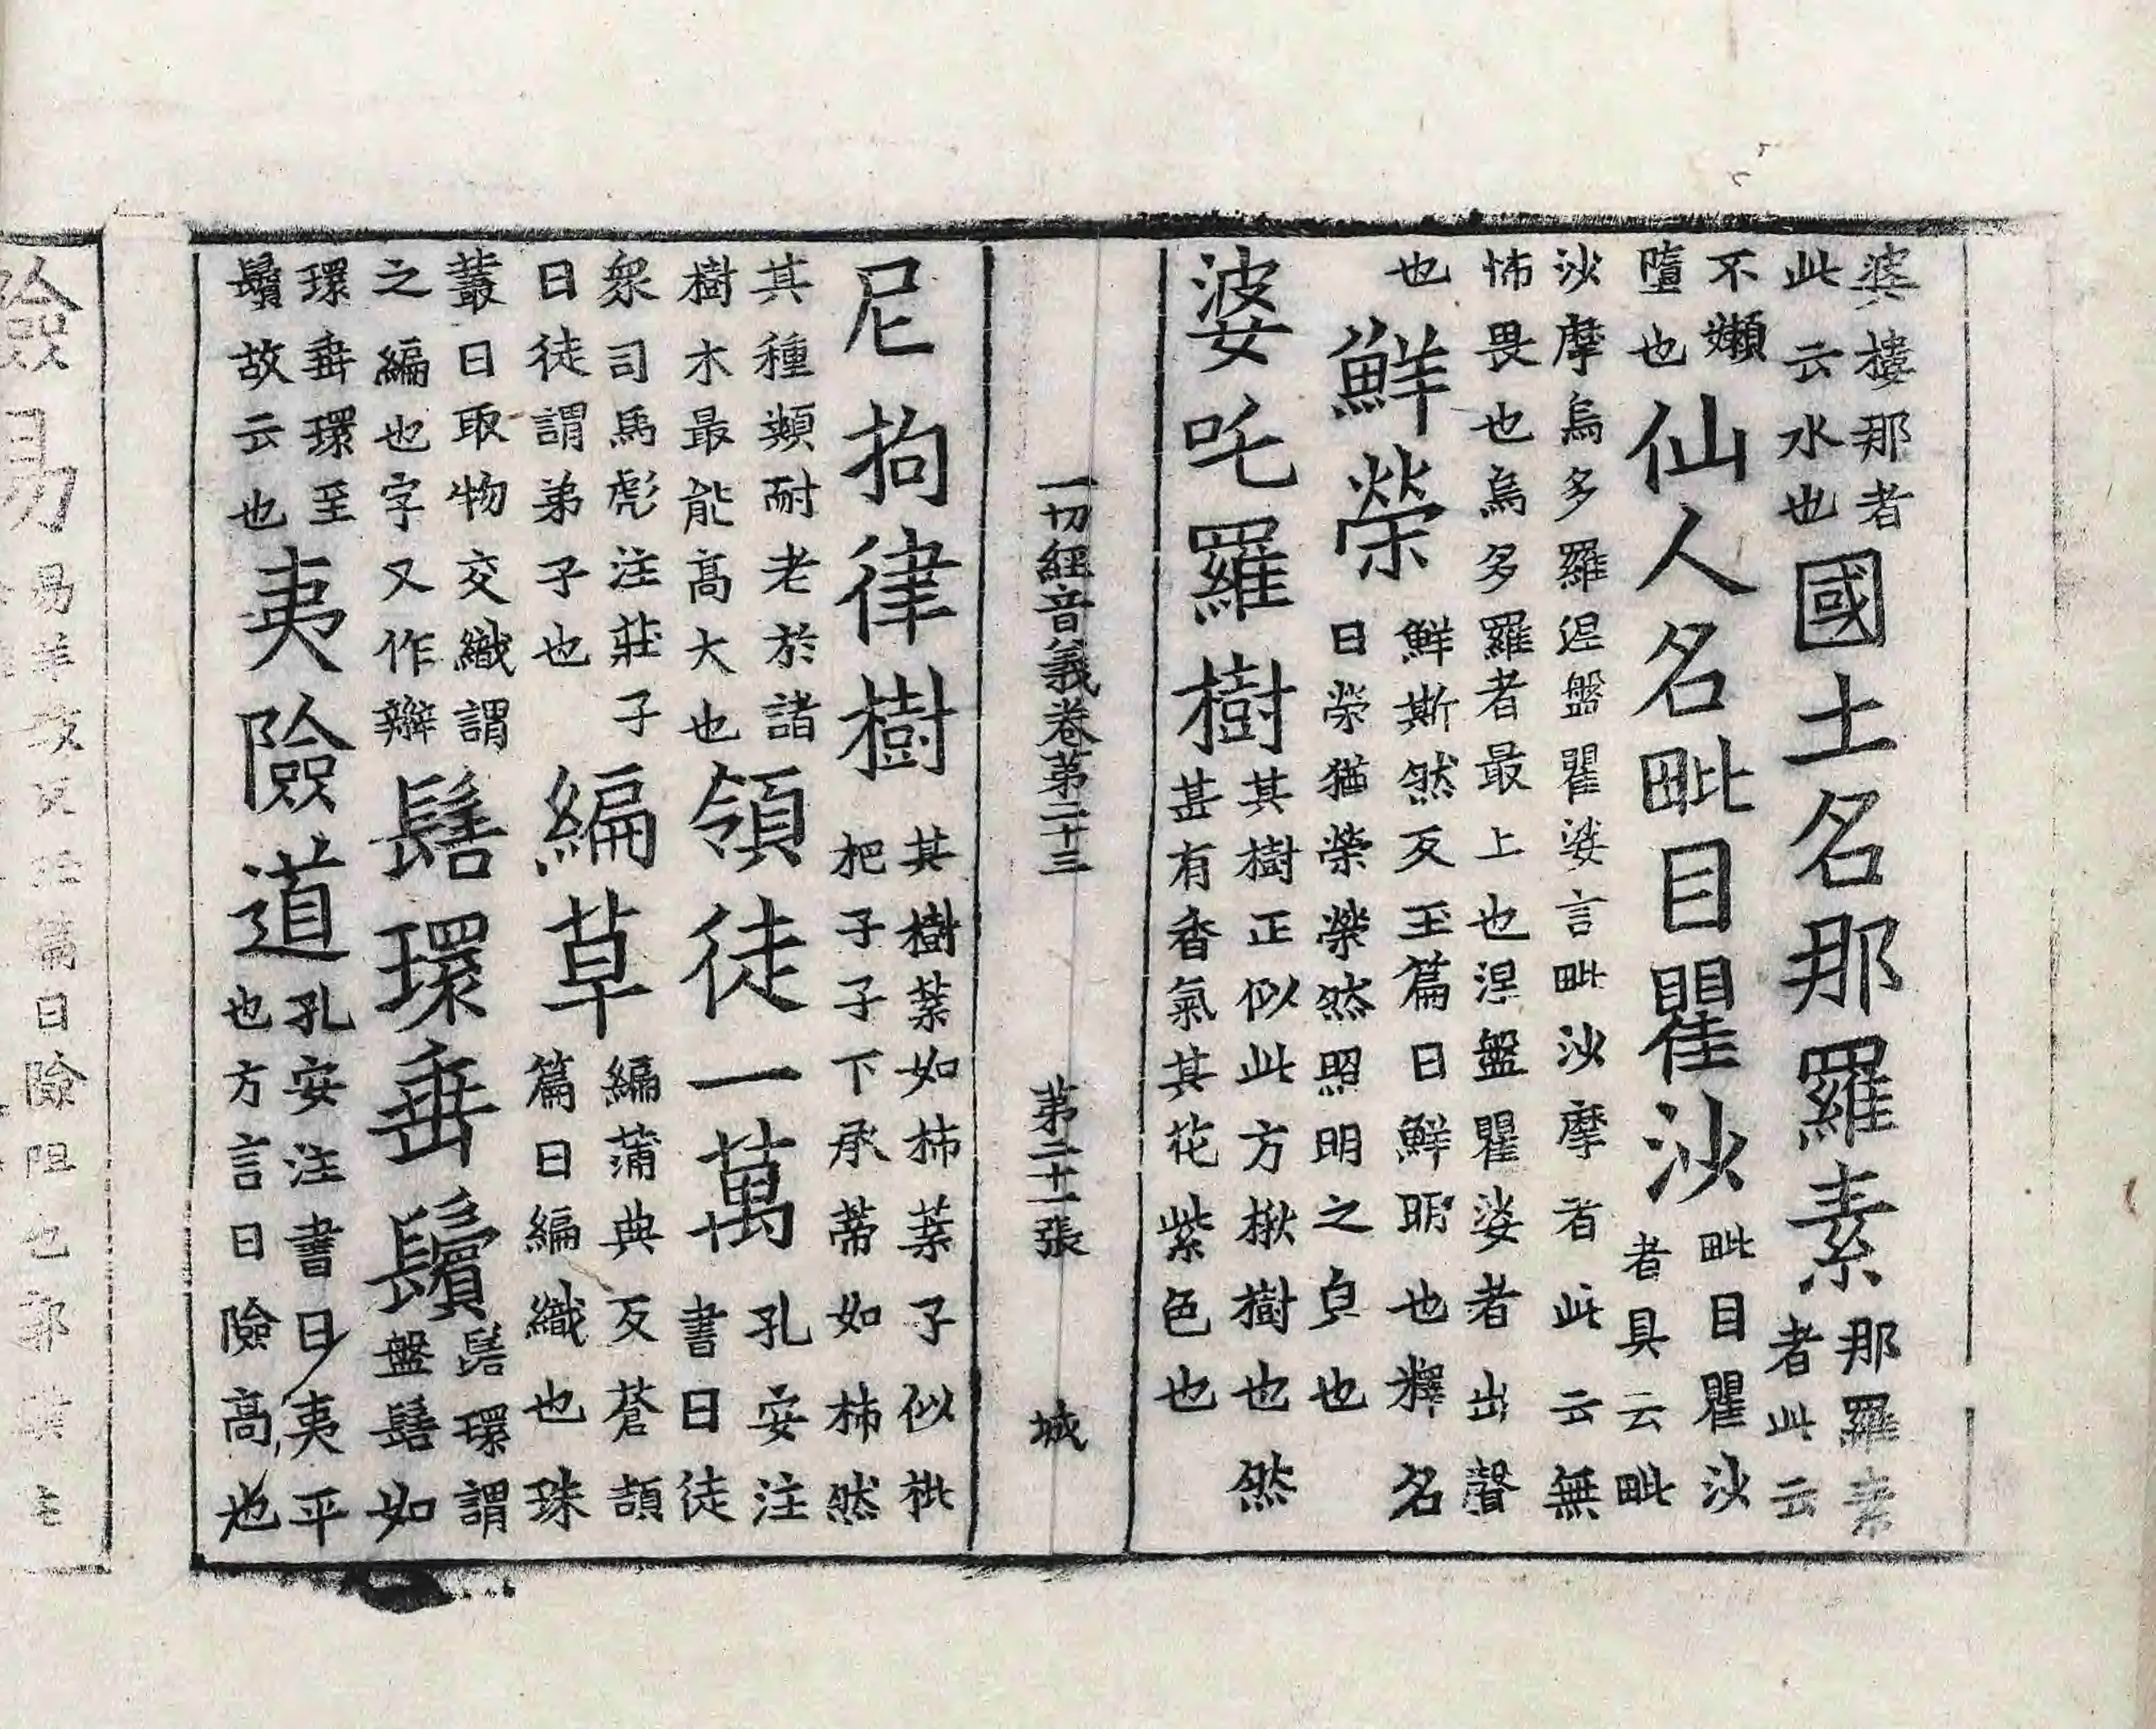 婆樓那者此云水也國土名那羅素那羅素者此云
不嬾墮也仙人名毗目瞿沙毗目瞿沙者具云毗
沙摩烏多羅涅盤瞿娑言毗沙摩者此云無怖畏也烏多羅者最上也涅盤瞿娑者出聲
也鮮榮鮮斯然反玉篇曰鮮明也釋名曰榮猶榮榮然照明之皃也
婆吒羅樹其樹正似此方楸樹也然甚有香氣其花紫色也
一切經音義卷第二十三 第二十一張 城
尼拘律樹其樹葉如柿葉子似枇杷子子下承蔕如柿然
其種類耐老於諸樹木最能高大也領徒一萬孔安注書曰徒
衆司馬彪注莊子曰徒謂弟子也編草編蒲典反蒼頡篇曰編織也珠
叢曰取物交織謂之編也字又作辮髻環垂鬢髻環謂盤髻如
環垂環至鬢故云也夷險道孔安注書曰夷平也方言曰險高也
險易易羊反篇曰險阻也郭